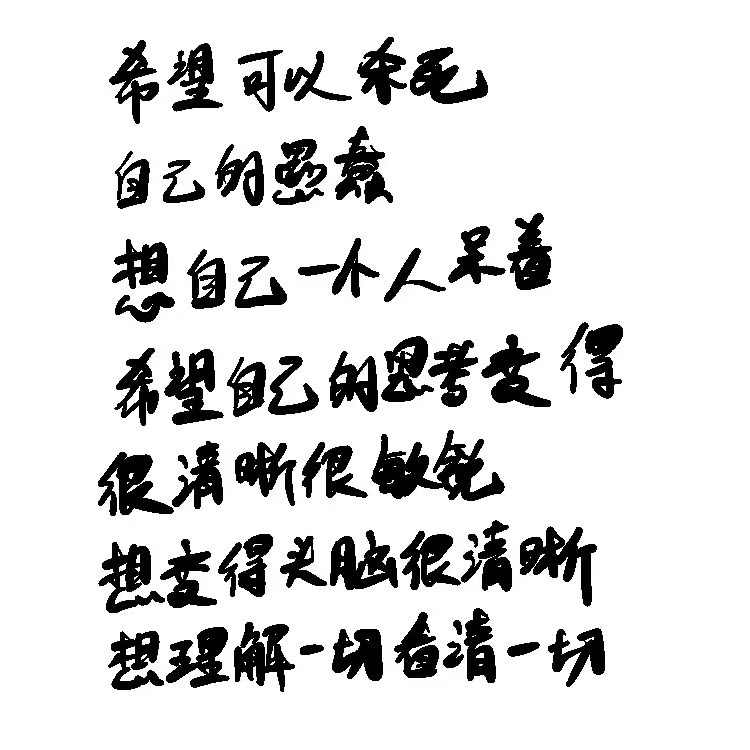 希望可以杀死
自己的愚蠢
想自己一个人呆着
希望自己的思考变得
很清晰很敏锐
想变得头脑很清晰
想理解一切看清一切